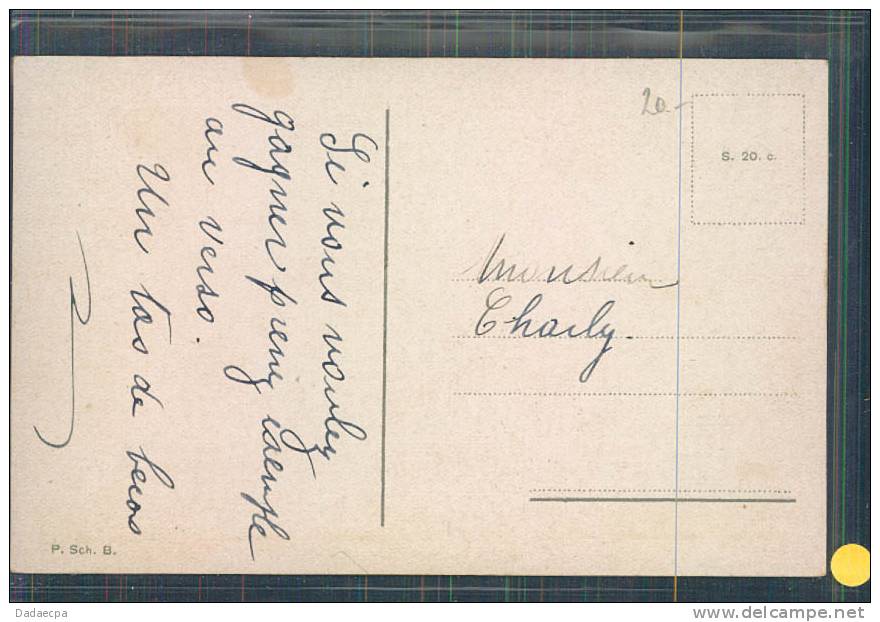 Si vous voulez
gagner prenez exemple
au verso.
Un tas de becos
20.-
S. 20. c.
Monsieur
Charly.
P. Sch. B.
Dadaecpa
www.delcampe.net